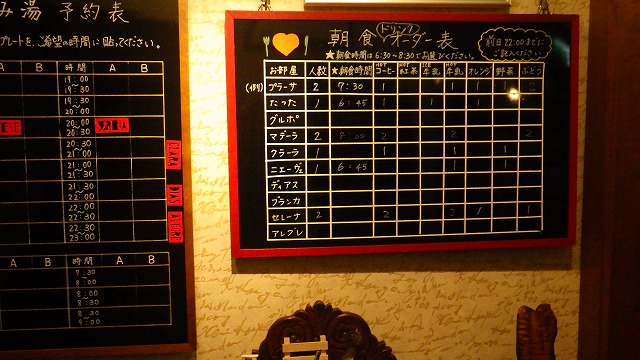 み湯 予約表
プレートを、ご希望の時間に貼ってください。
A B 時間 A B
19:00
19:30
19:30
20:00
20:00
20:30
20:30
21:00
21:00
21:30
21:30
22:00
22:00
22:30
22:30
23:00
CLARA
DIAS
ALEGRE
A B 時間 A B
7:30
8:00
8:00
8:30
8:30
9:00
朝食ドリンクオーダー表
★朝食時間は6:30~8:30でお選びください。
前日22:00までに
ご記入ください
お部屋 人数 ★朝食時間 HOTコーヒー HOT紅茶 ICE牛乳 HOT牛乳 オレンジ 野菜 ぶどう
(例) プラーサ 2 7:30 1 1 1
たった 1 6:45 1 1 1
グルポ
マデーラ 2 8:00 2 2 2
クラーラ 1 1 1
ニェーヴェ 1 6:45 1 1
ディアス
ブランカ
セレーナ 2 2 2 1 1
アレグレ